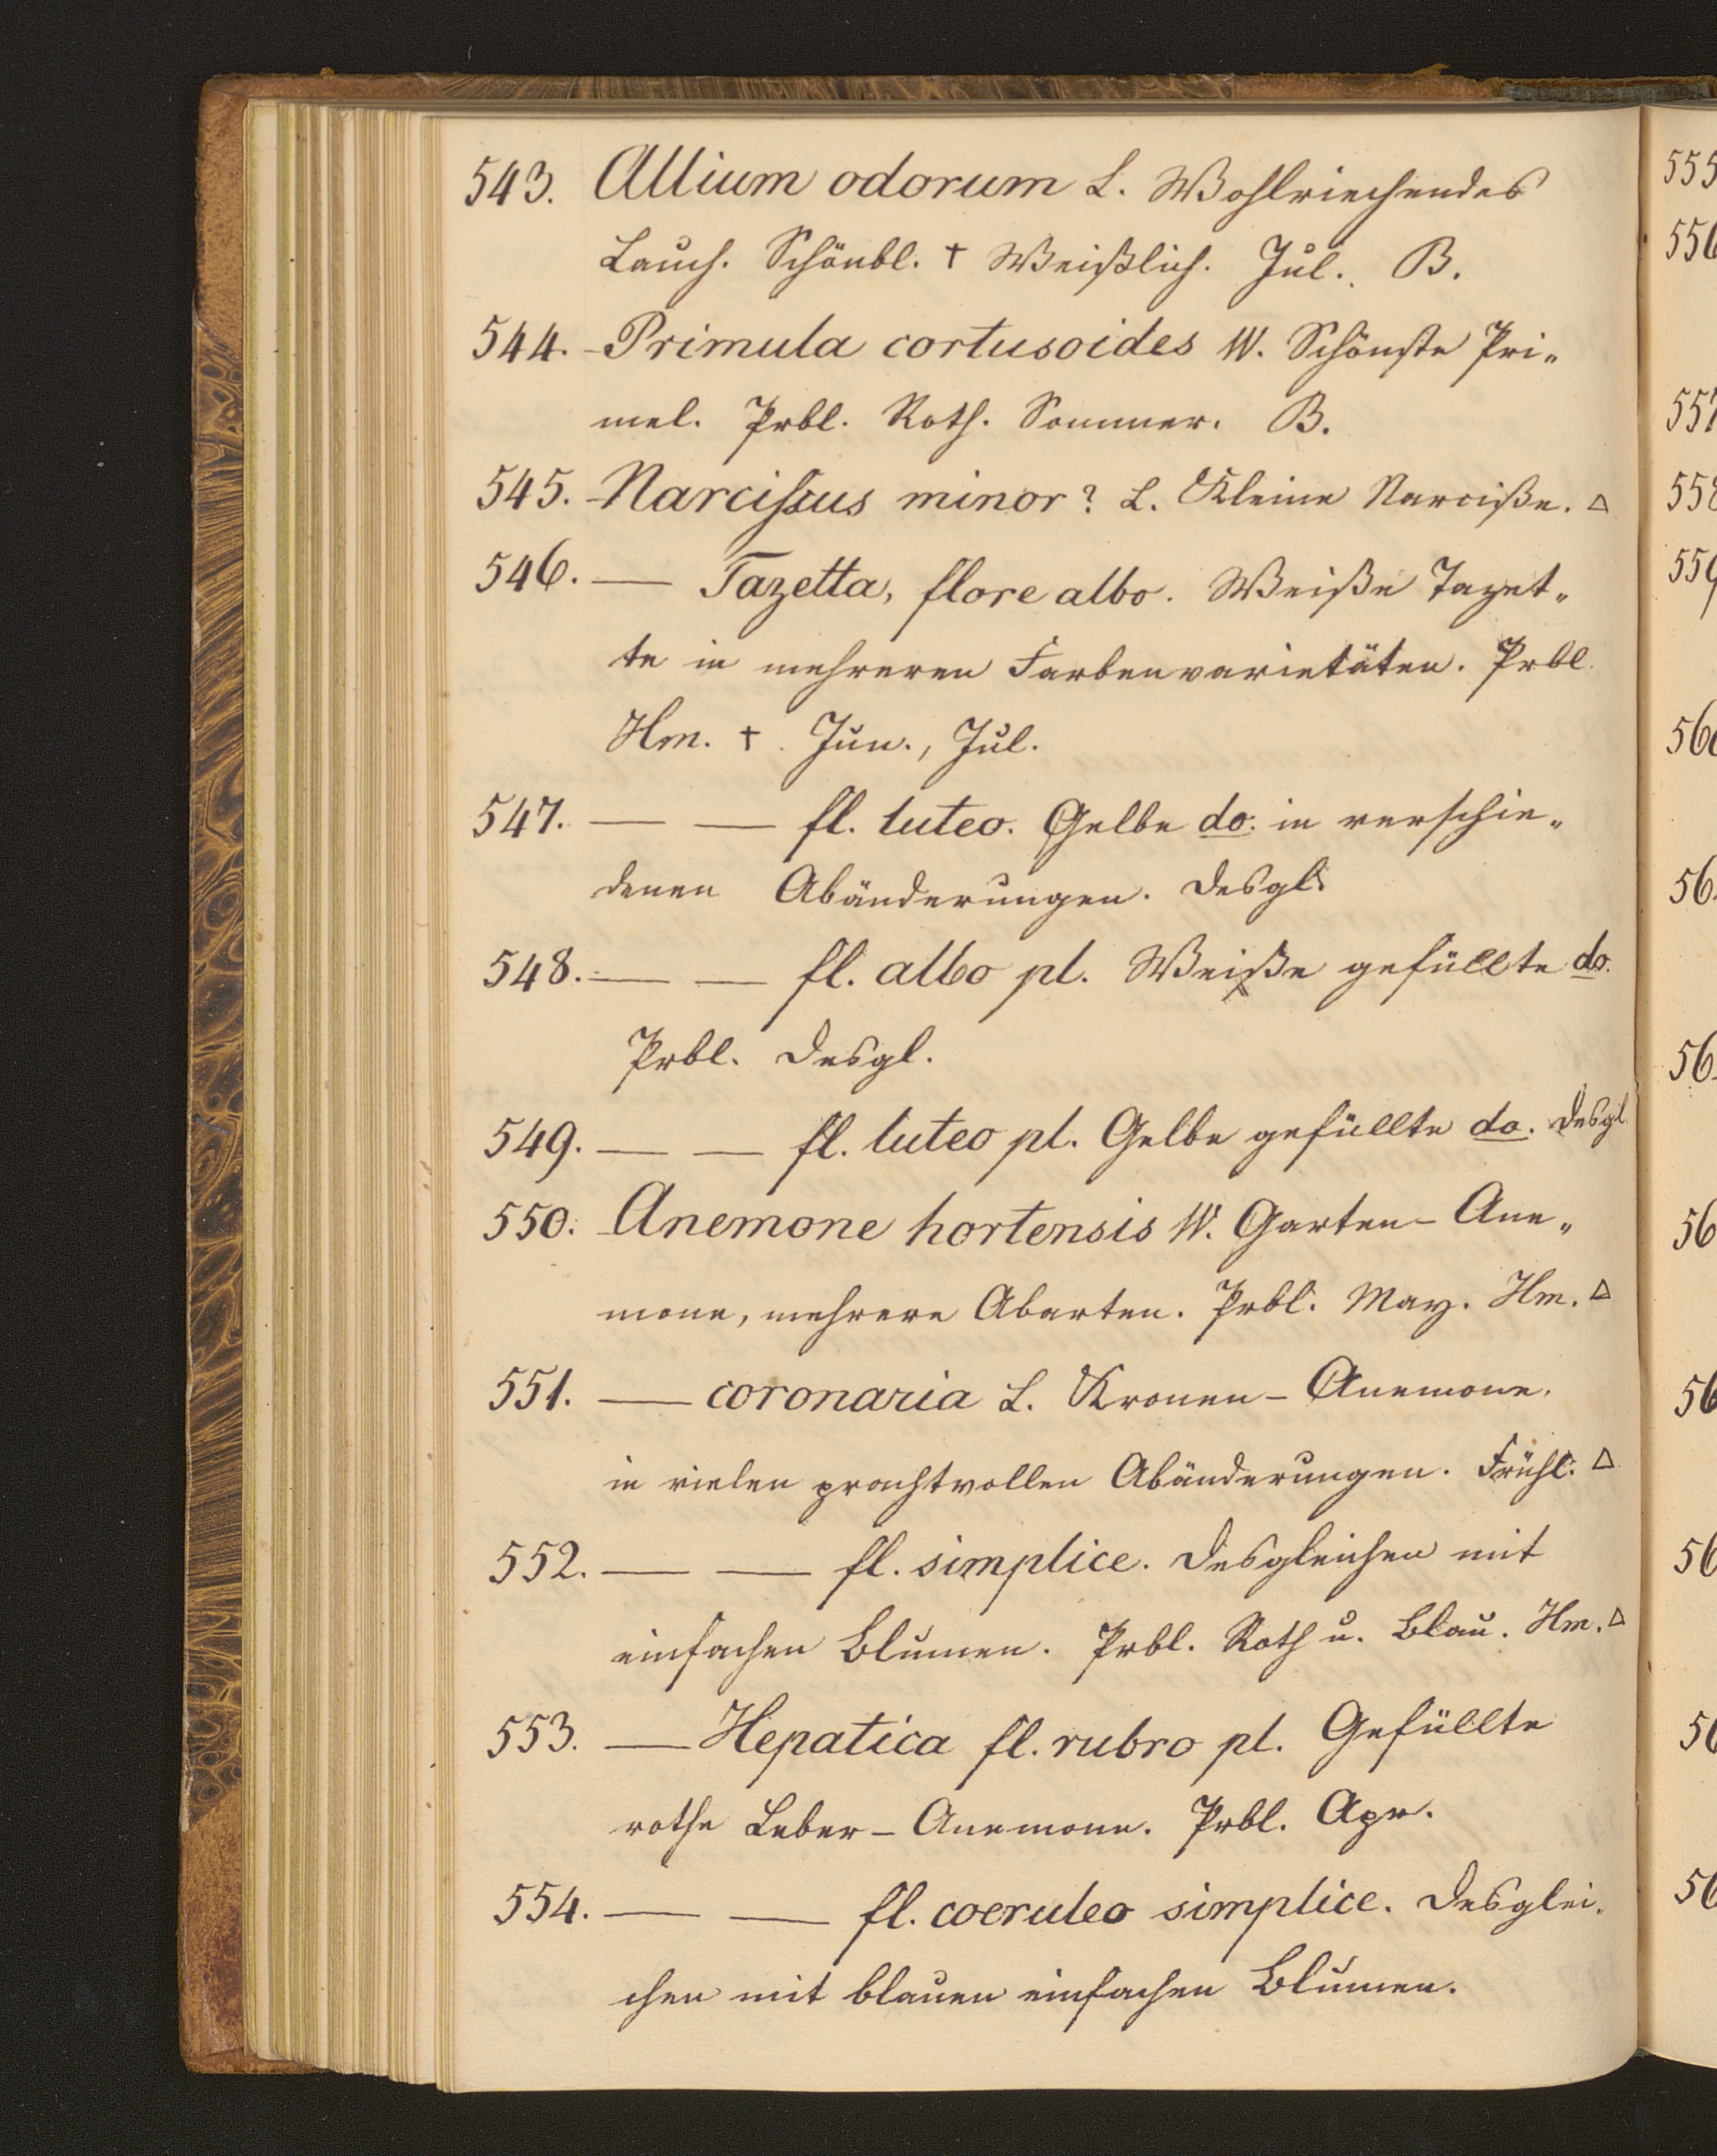 543. Allium odorum L. Wohlriechendes
Lauch. Schönbl. † Weißlich. Jul. B.
544. Primula cortusoides W. Schönste Pri„
mel. Prbl. Roth. Sommer. B.
545. Narcissus minor? L. Kleine Narciße. △
546. — Tazetta, flore albo. Weiße Tazet„
te in mehreren Farbenvarietäten. Prbl.
Hm. †. Jun., Jul.
547. — — fl. luteo. Gelbe do. in verschie„
denen Abänderungen. Desgl.
548. — — fl. albo pl. Weiße gefüllte do.
Prbl. Desgl.
549. — — fl. luteo pl. Gelbe gefüllte do. Desgl.
550. Anemone hortensis W. Garten-Ane„
mone, mehrere Abarten. Prbl. May. Hm. △
551. — coronaria L. Kronen-Anemone.
in vielen prachtvollen Abänderungen. Frühl. △
552. — — fl. simplice. Desgleichen mit
einfachen Blumen. Prbl. Roth u. Blau. Hm. △
553. — Hepatica fl. rubro pl. Gefüllte
rothe Leber-Anemone. Prbl. Apr.
554. — — fl. coeruleo simplice. Desglei„
chen mit blauen einfachen Blumen.
555
556
557
558
559